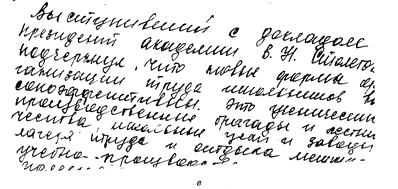 Выступивший с докладом
президент академии В. Н. Столетов
подчеркнул, что новые формы ор-
ганизации труда школьников вы-
сокоэффективны. Это ученические
производственные бригады и лесни-
чества, школьные цехи и заводы
лагеря труда и отдыха, меж-
учебно-произв